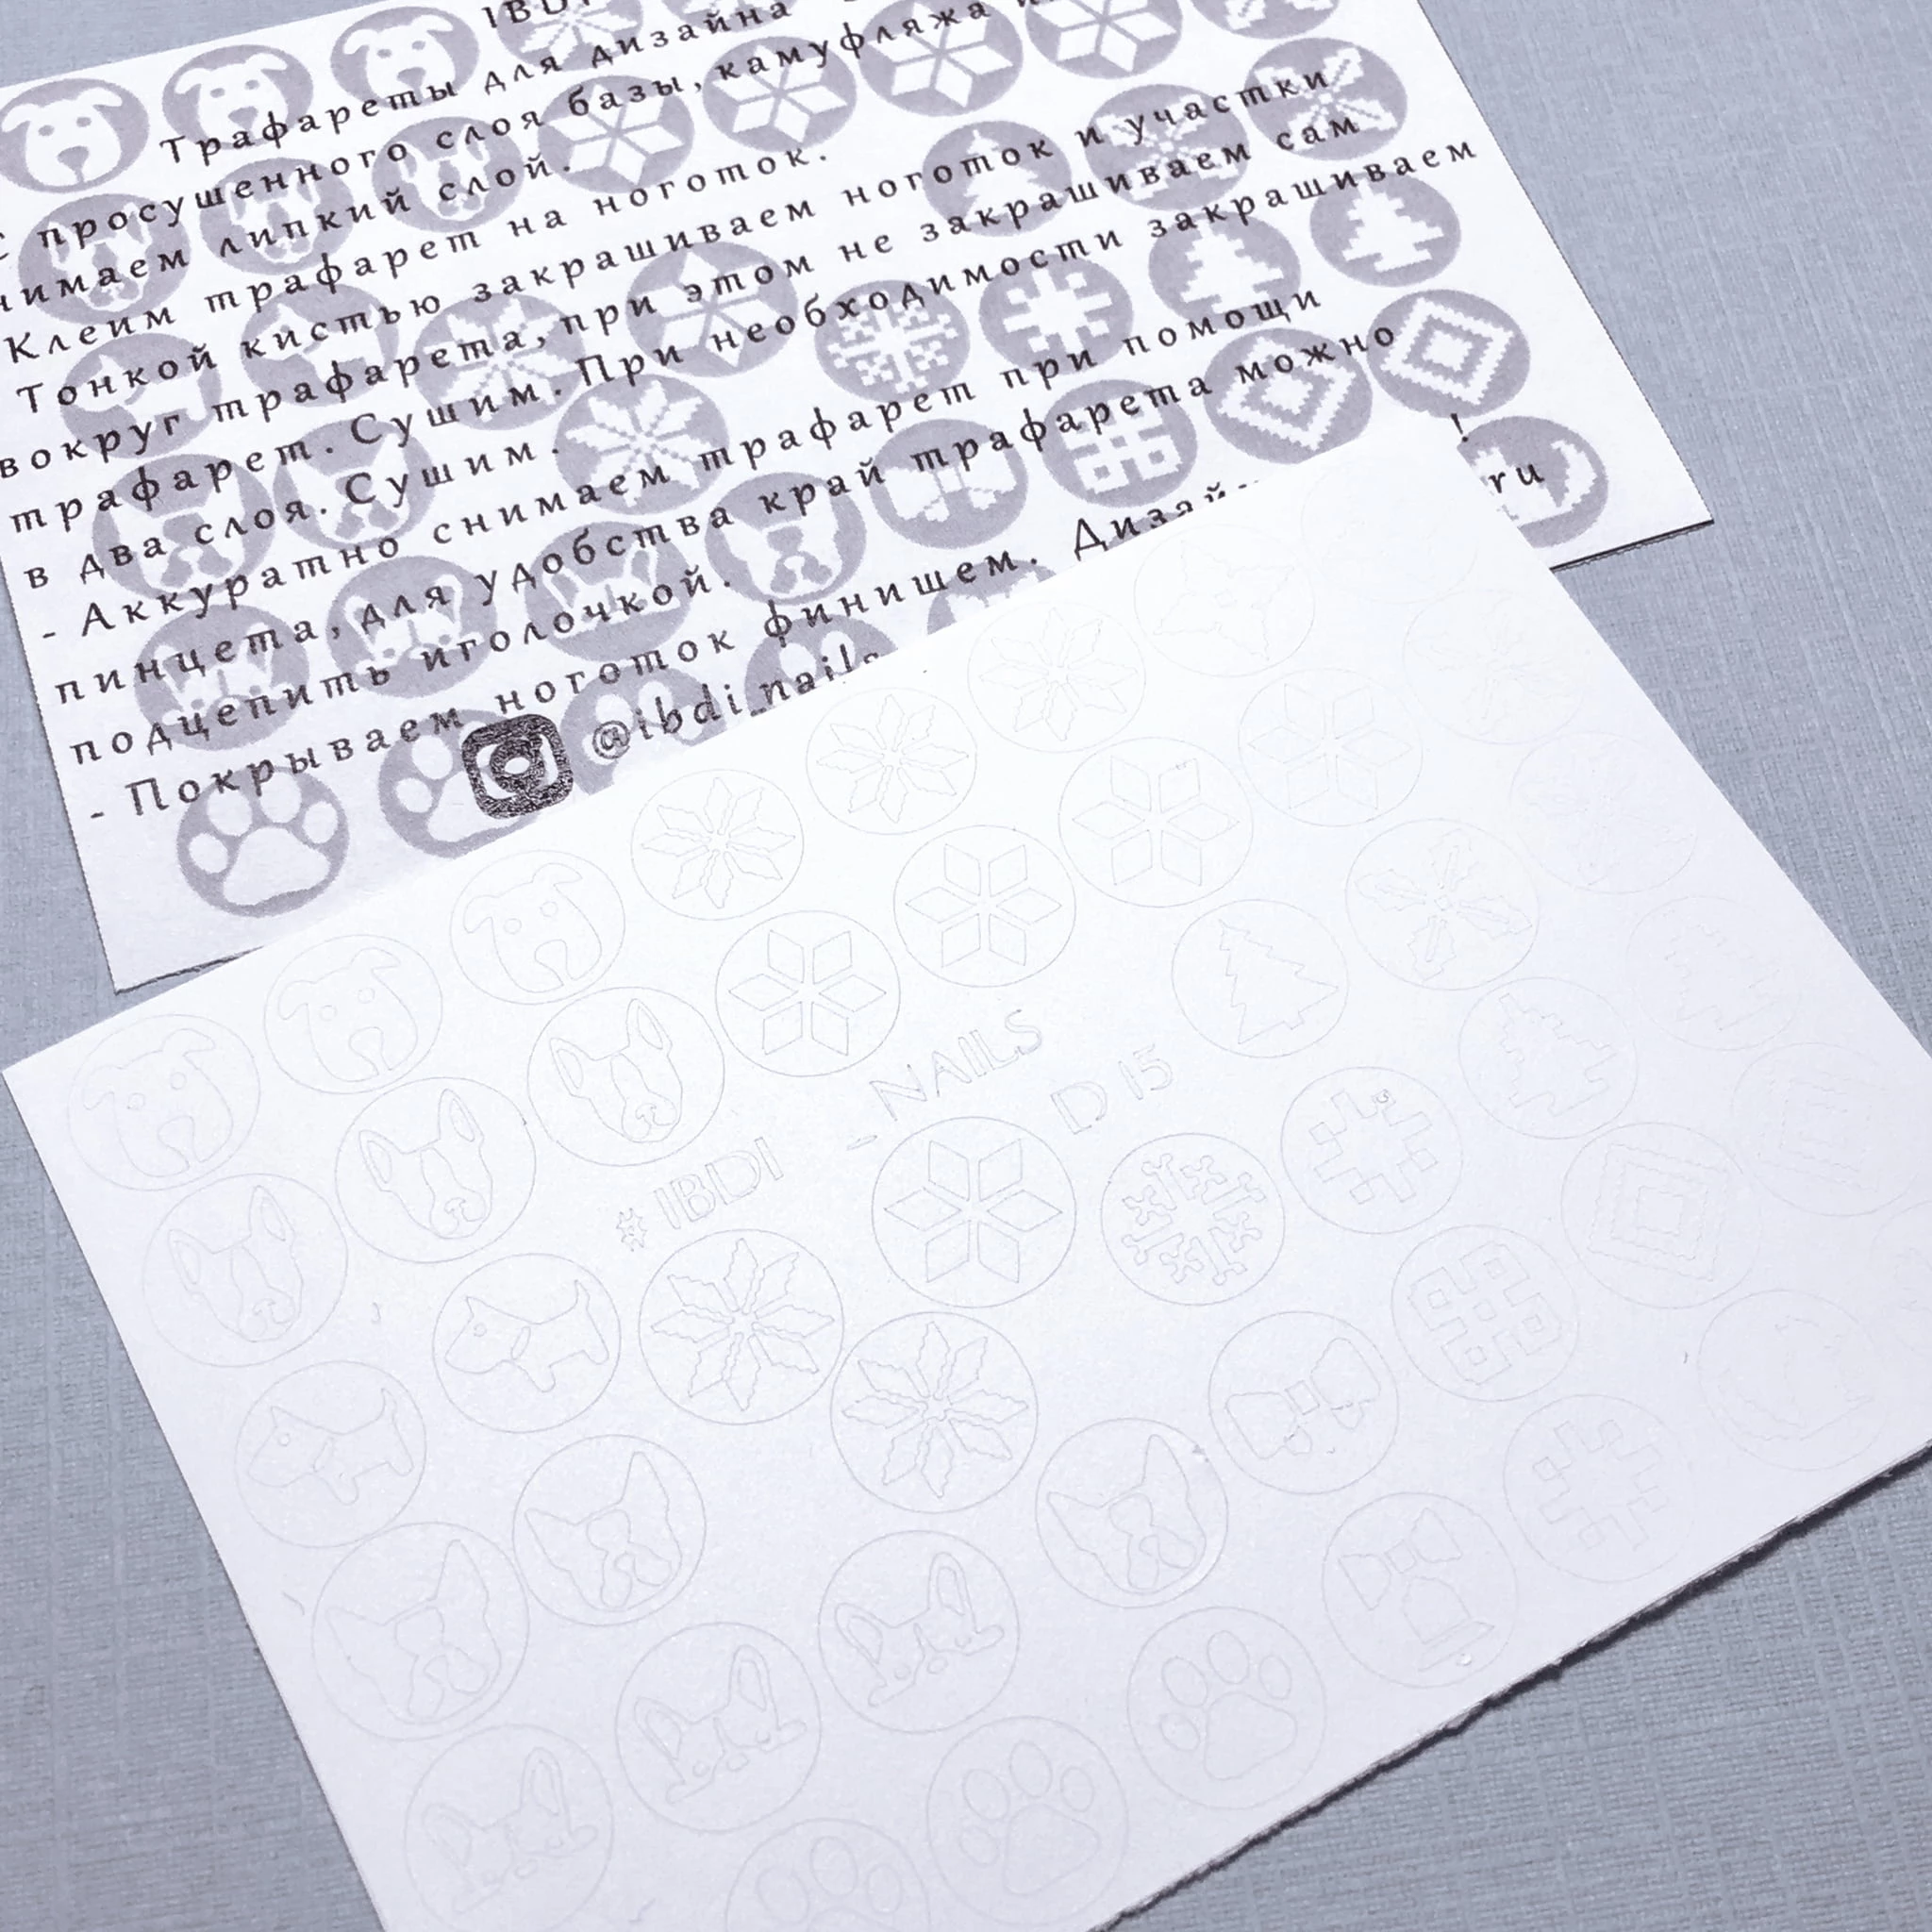 Трафареты для дизайна
с просушенного слоя базы, камуфляжа
снимаем липкий слой.
Клеим трафарет на ноготок.
Тонкой кистью закрашиваем ноготок и участки
вокруг трафарета, при этом не закрашиваем сам
трафарет. Сушим. При необходимости закрашиваем
в два слоя. Сушим.
- Аккуратно снимаем трафарет при помощи
пинцета, для удобства край трафарета можно
подцепить иголочкой.
- Покрываем ноготок финишем. !
@ibdi_nails ru
# IBDI _NAILS
D 15